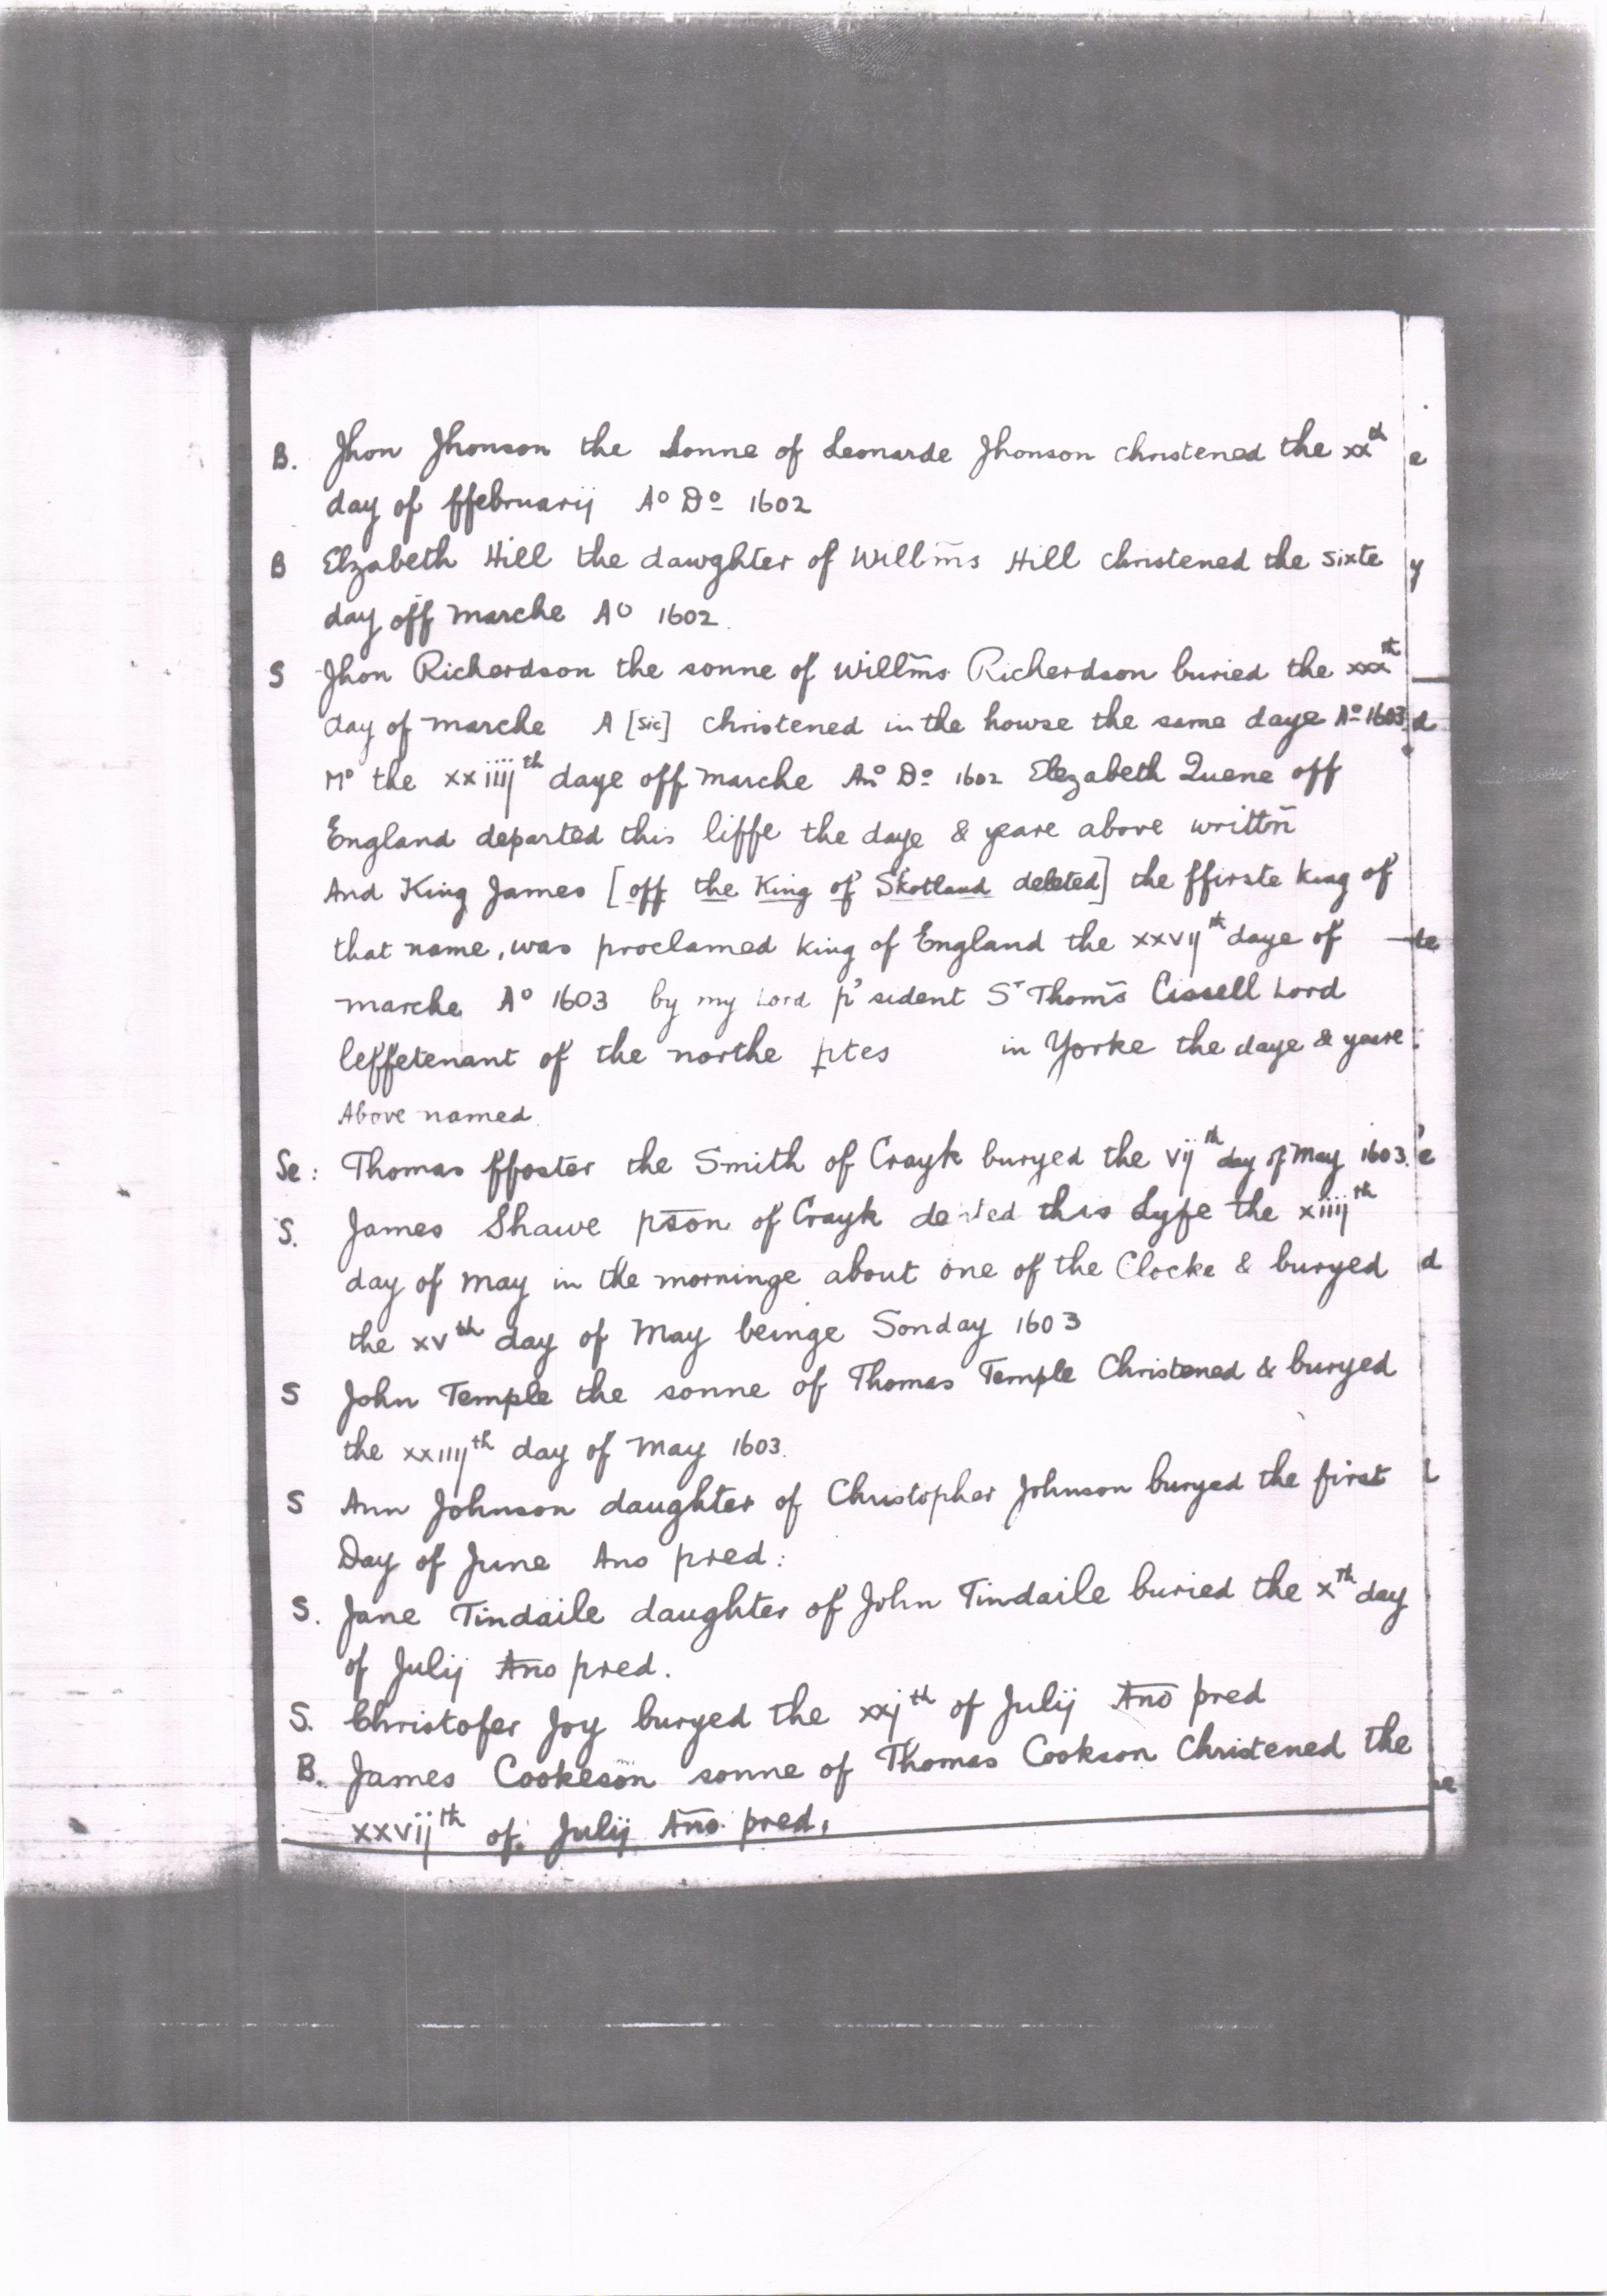 B. Jhon Jhonson the Sonne of Leonarde Jhonson christened the xxth
day of ffebruarij Ao Do 1602
B Elzabeth Hill the dawghter of Willm̄s Hill christened the sixte
day off marche Ao 1602.
S Jhon Richerdson the sonne of Willm̄s Richerdson buried the xxxth
day of marche A [sic] christened in the howse the same daye Ao 1603
Mo the xxiiijth daye off marche Ano Do 1602 Elezabeth Quene off
England departed this liffe the daye & yeare above writtn̄
And King James [off the King of Skotland deleted] the ffirste king of
that name, was proclamed king of England the xxvijth daye of
marche Ao 1603 by my Lord p'sident Sr Thom̄s Cissell Lord
leffetenant of the northe ptes in Yorke the daye & yeare
Above named
Se: Thomas ffoster the Smith of Crayk buryed the vijth day of May 1603.
S. James Shawe pson of Crayk this Lyfe the xiiijth
day of may in the morninge about one of the Clocke & buryed
the xvth day of May beinge Sonday 1603
S John Temple the sonne of Thomas Temple Christened & buryed
the xxiiijth day of May 1603.
S Ann Johnson daughter of Christopher Johnson buryed the first
Day of June Ano pred:
S. Jane Tindaile daughter of John Tindaile buried the xth day
of Julij Ano pred.
S. Christofer Joy buryed the xxjth of Julij Ano pred
B. James Cookeson sonne of Thomas Cookson Christened the
xxvijth of Julij Ano pred.